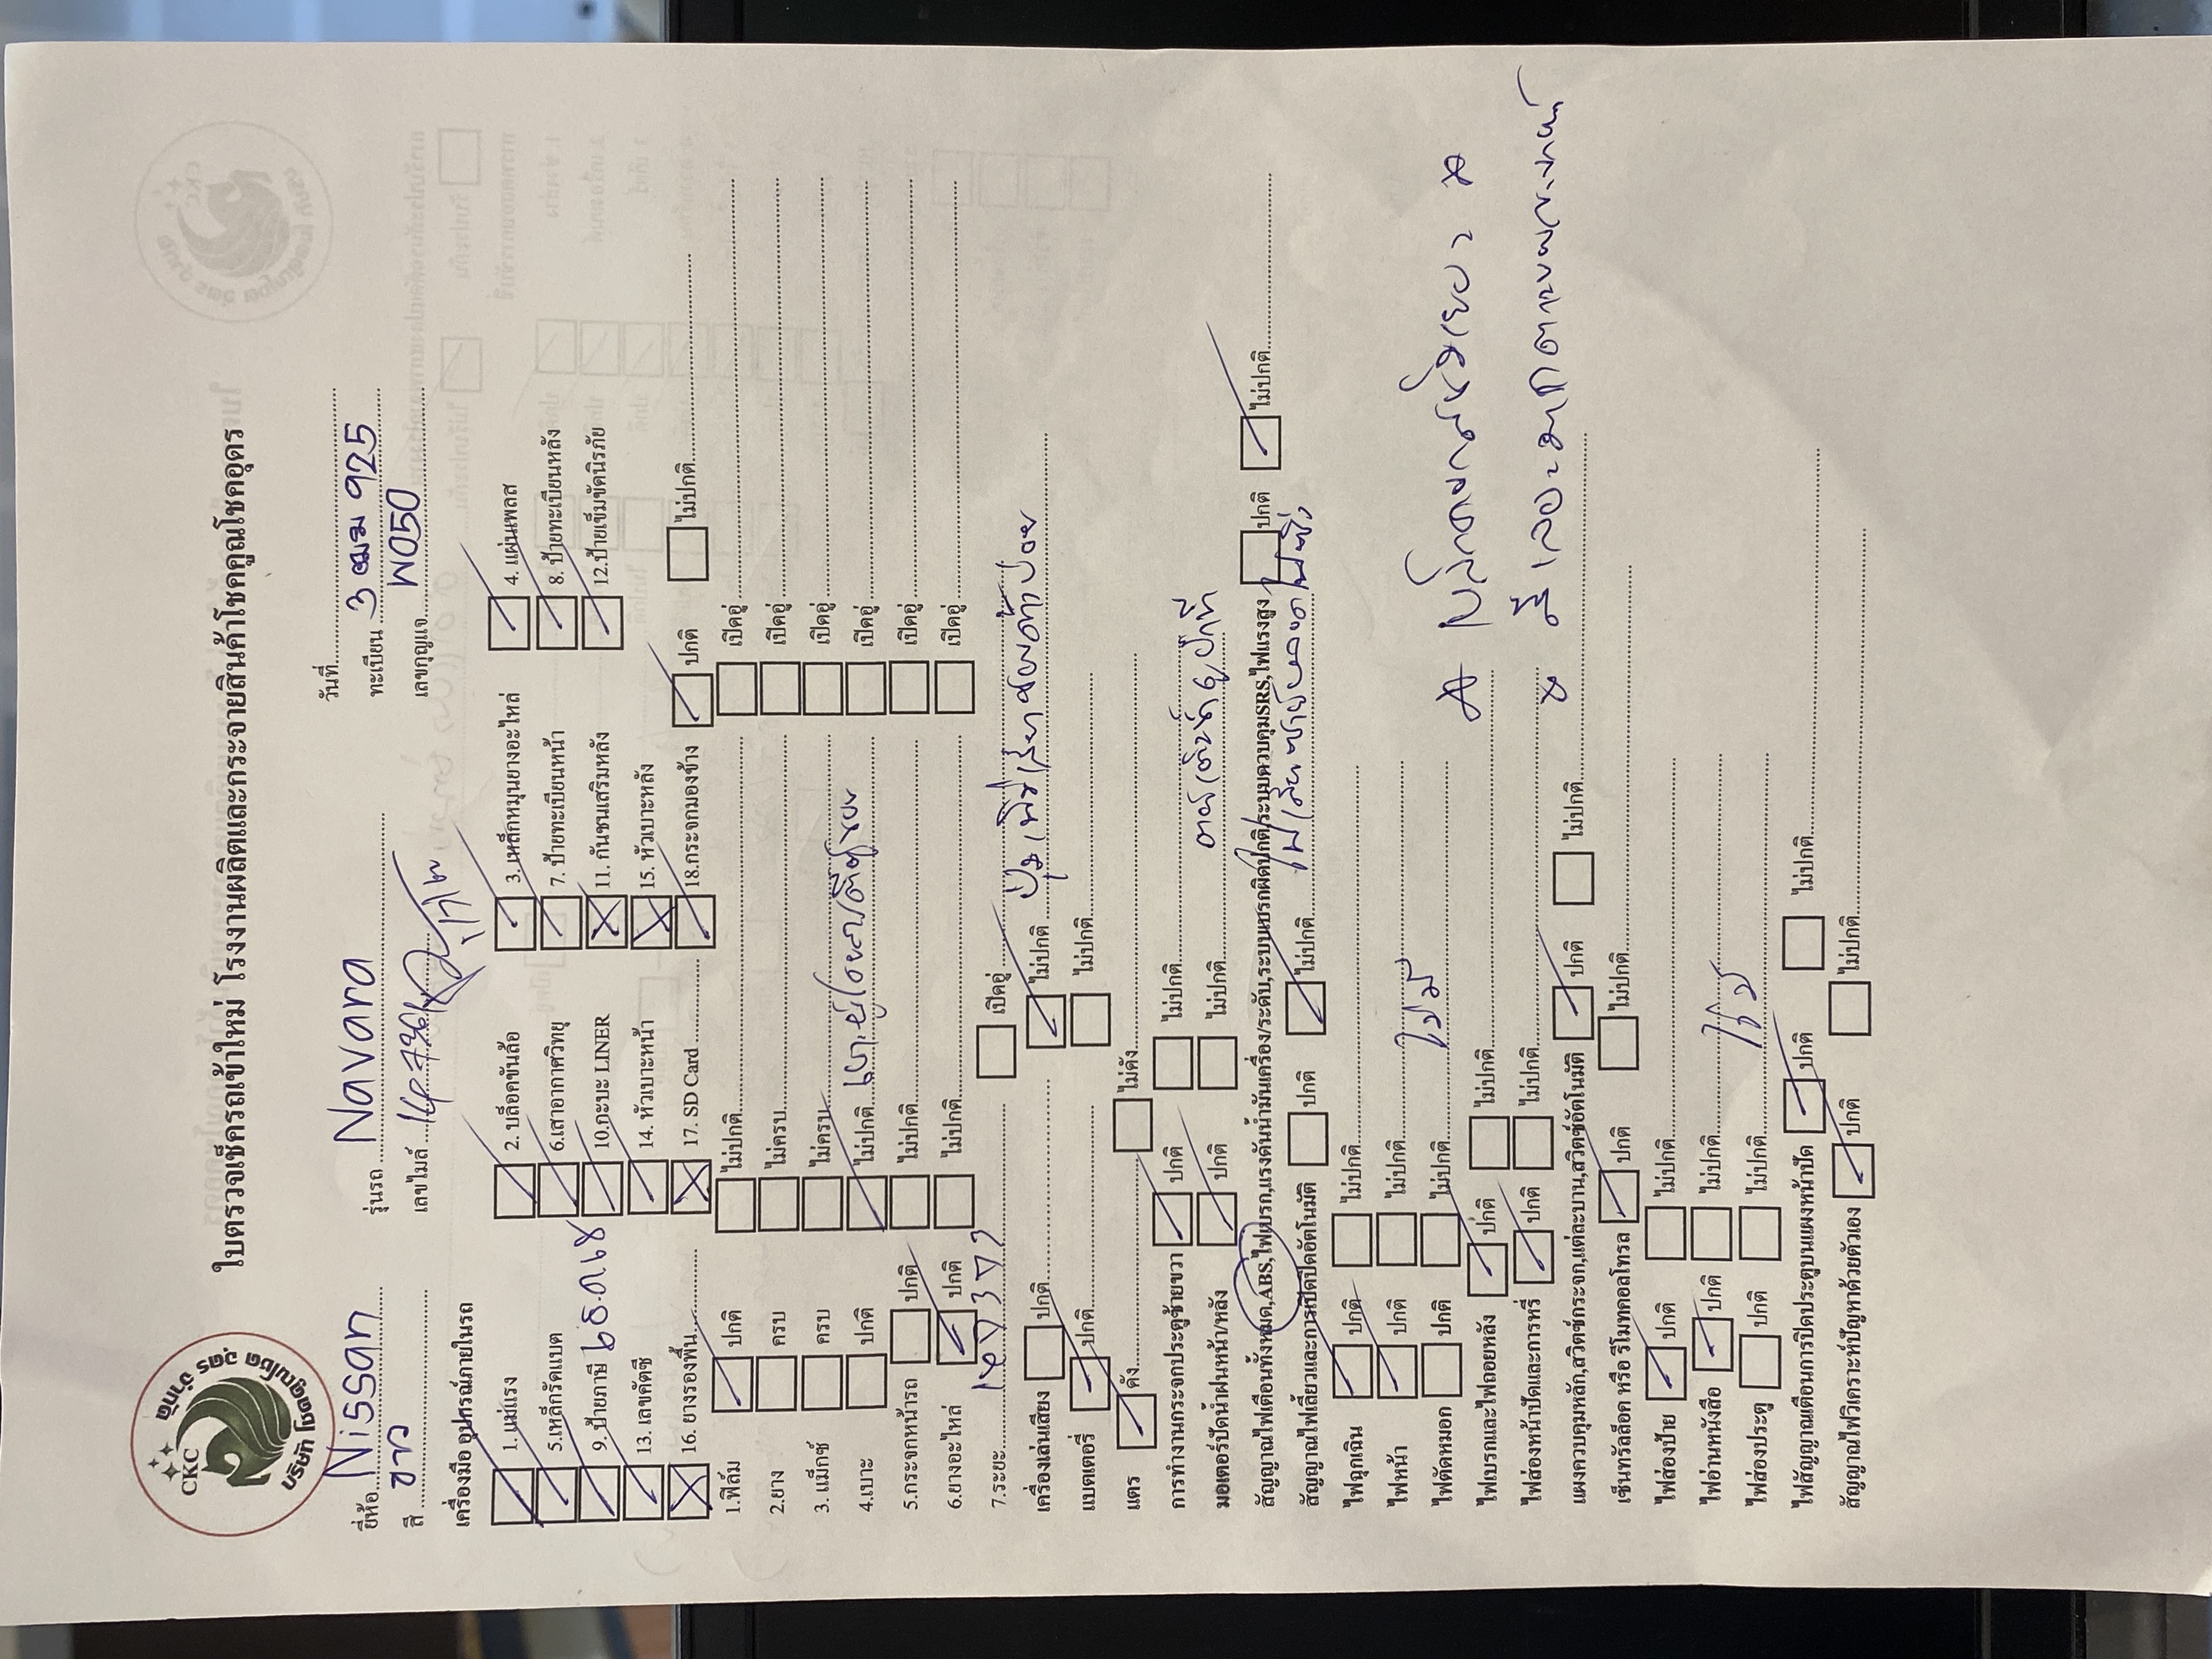 CKC
บริษัท โชคคูณโชค อุดร จำกัด
ใบตรวจเช็ครถเข้าใหม่ โรงงานผลิตและกระจายสินค้าโชคคูณโชคอุดร
วันที่
ยี่ห้อ Nissan รุ่นรถ Navara ทะเบียน 3ฒฆ 925
สี ขาว เลขไมล์ เลขกุญแจ W050
เครื่องมือ อุปกรณ์ภายในรถ
1.แม่แรง 2. บล็อคขันล้อ 3.เหล็กหมุนยางอะไหล่ 4. แผ่นพลส
5.เหล็กรัดแบต 6.เสาอากาศวิทยุ 7. ป้ายทะเบียนหน้า 8. ป้ายทะเบียนหลัง
9.ป้ายภาษี 10.กะบะ LINER 11. กันชนเสริมหลัง 12.ป้ายเข็มขัดนิรภัย
13. เลขคัตซี 14. หัวเบาะหน้า 15. หัวเบาะหลัง
16. ยางรองพื้น 17. SD Card 18.กระจกมองข้าง ปกติ ไม่ปกติ
1.ฟิล์ม ปกติ ไม่ปกติ เปิดอู่
2.ยาง ครบ ไม่ครบ เปิดอู่
3. แม็กซ์ ครบ ไม่ครบ เปิดอู่
4.เบาะ ปกติ ไม่ปกติ เปิดอู่
5.กระจกหน้ารถ ปกติ ไม่ปกติ เปิดอู่
6.ยางอะไหล่ ปกติ ไม่ปกติ เปิดอู่
7.ระยะ เปิดอู่
เครื่องเล่นเสียง ปกติ ไม่ปกติ
แบตเตอรี่ ปกติ ไม่ปกติ
แตร ดัง ไม่ดัง
การทำงานกระจกประตูซ้ายขวา ปกติ ไม่ปกติ
มอเตอร์ปัดน้ำฝนหน้า/หลัง ปกติ ไม่ปกติ
สัญญาณไฟเตือนทั้งหมด,ABS,ไฟเบรก,แรงดันน้ำมันเครื่อง/ระดับ,ระบบเบรกผิดปกติ/ระบบควบคุมSRS,ไฟแรงสูง ปกติ ไม่ปกติ
สัญญาณไฟเลี้ยวและการเปิดปิดอัตโนมัติ ปกติ ไม่ปกติ
ไฟฉุกเฉิน ปกติ ไม่ปกติ
ไฟหน้า ปกติ ไม่ปกติ
ไฟตัดหมอก ปกติ ไม่ปกติ ไม่มี
ไฟเบรกและไฟถอยหลัง ปกติ ไม่ปกติ
ไฟส่องหน้าปัดและการหรี่ ปกติ ไม่ปกติ
แผงควบคุมหลัก,สวิตซ์กระจก,แต่ละบาน,สวิตซ์อัตโนมัติ ปกติ ไม่ปกติ
เซ็นทรัลล็อค หรือ รีโมทคอลโทรล ปกติ ไม่ปกติ
ไฟส่องป้าย ปกติ ไม่ปกติ
ไฟอ่านหนังสือ ปกติ ไม่ปกติ
ไฟส่องประตู ปกติ ไม่ปกติ ไม่มี
ไฟสัญญาณเตือนการปิดประตูบนแผงหน้าปัด ปกติ ไม่ปกติ
สัญญาณไฟวิเคราะห์ปัญหาด้วยตัวเอง ปกติ ไม่ปกติ